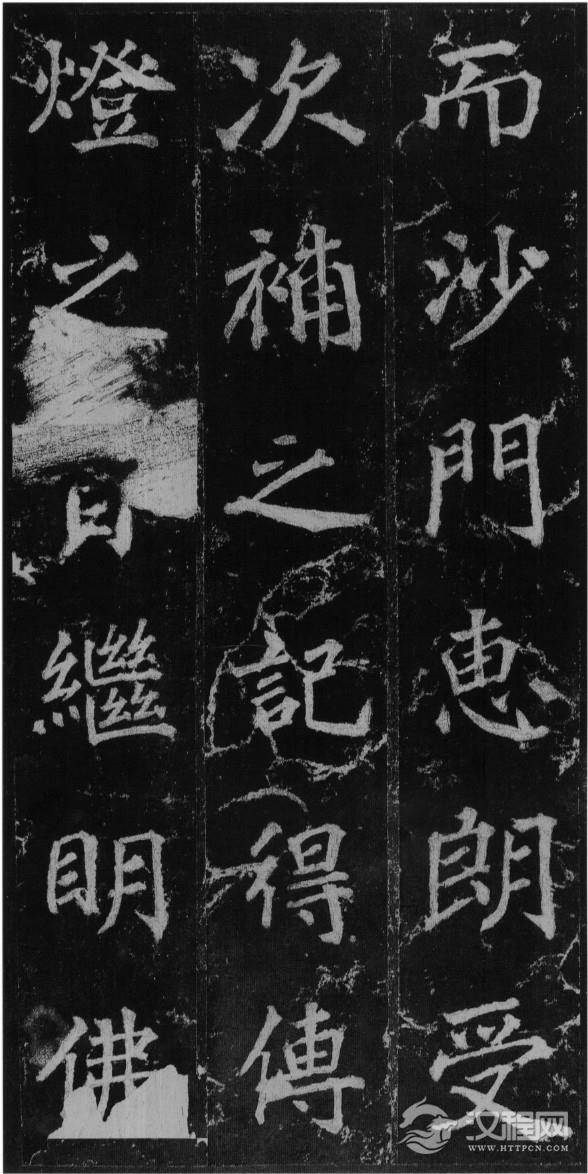 而沙門恵朗受
次補之記得傳
燈之日繼明佛
汉程网
WWW.HTTPCN.COM